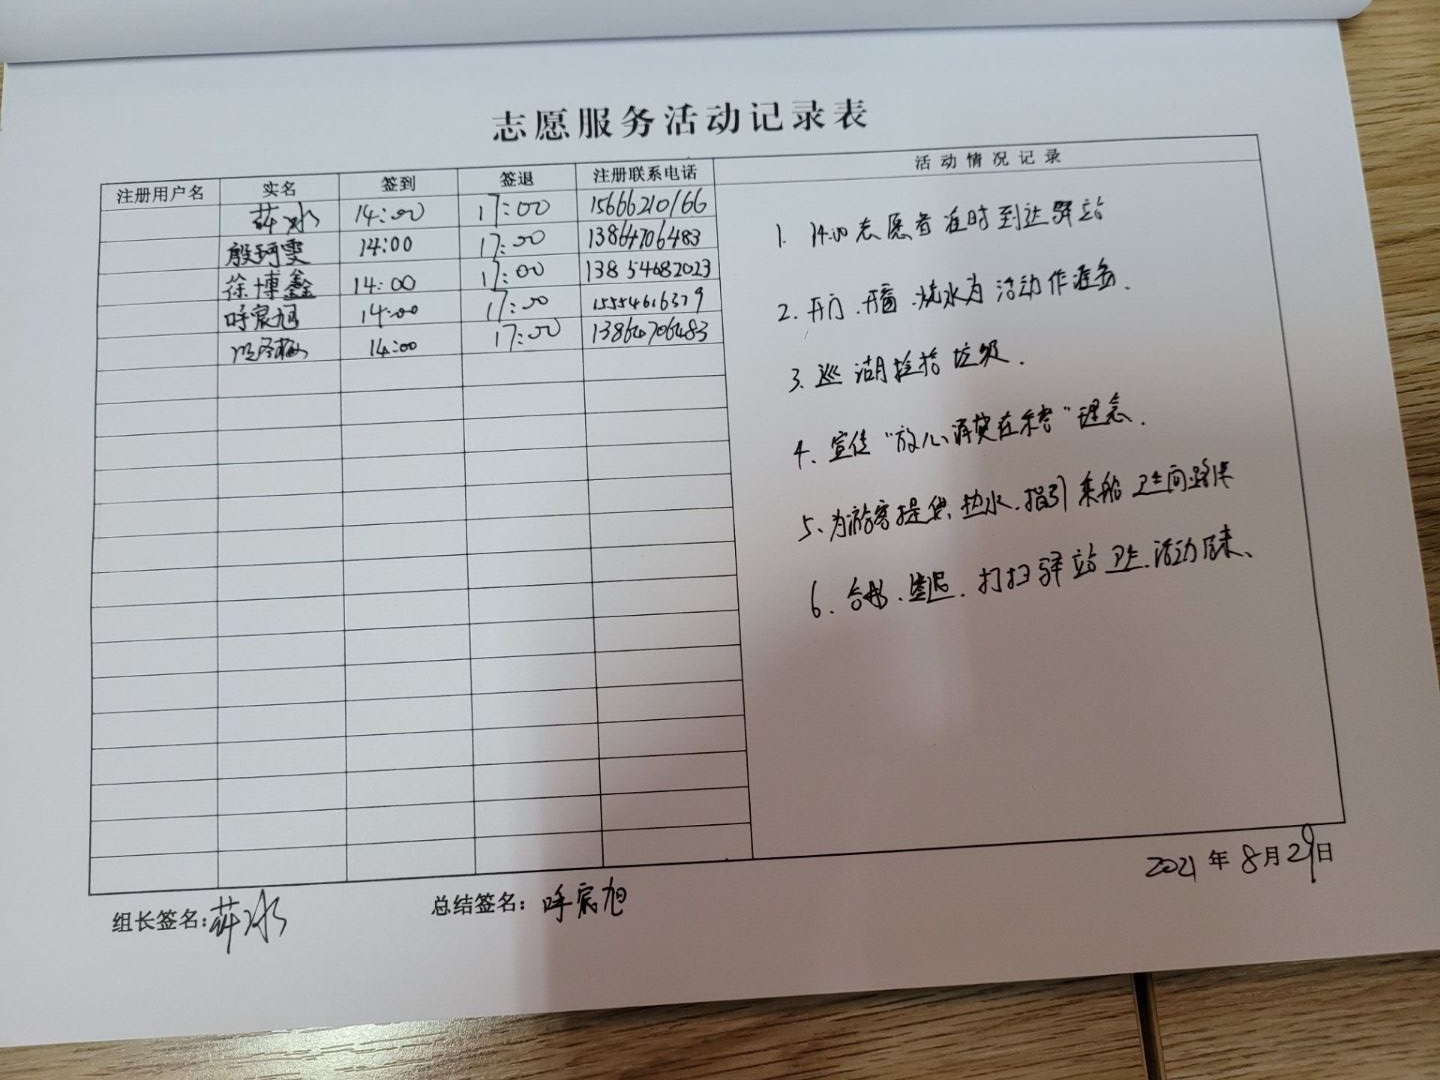 志愿服务活动记录表
注册用户名 实名 签到 签退 注册联系电话 活动情况记录
薛冰 14:00 17:00 15666210166
殷珂雯 14:00 17:00 13864706483
徐博鑫 14:00 17:00 13854682023
呼宸旭 14:00 17:00 15554616379
14:00 17:00 13864706483
1. 14:00志愿者准时到达驿站
2. 开门、开窗、烧水为活动作准备.
3. 巡湖捡拾垃圾.
4. 宣传"放心消费在东营"理念.
5、为游客提供热水.指引乘船卫生间路线
6. 合影、签退.打扫驿站卫生.活动结束、
2021年8月29日
组长签名:薛冰 总结签名:呼宸旭